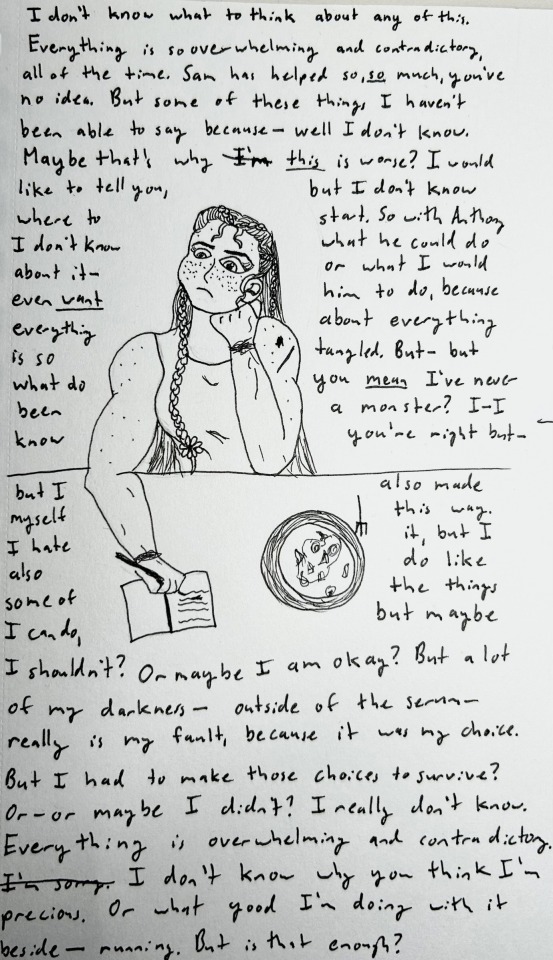 I don't know what to think about any of this.
Everything is so overwhelming and contradictory,
all of the time. Sam has helped so, so much, you've
no idea. But some of these things I haven't
been able to say because— well I don't know.
Maybe that's why I'm this is worse? I would
like to tell you, but I don't know
where to start. So with Anthony
I don't know what he could do
about it— or what I would
even want him to do, because
everything about everything
is so tangled. But— but
what do you mean I've never
been a monster? I-I
know you're right but—
but I also made
myself this way.
I hate it, but I
also do like
some of the things
I can do, but maybe
I shouldn't? Or maybe I am okay? But a lot
of my darkness— outside of the serum—
really is my fault, because it was my choice.
But I had to make those choices to survive?
Or—or maybe I didn't? I really don't know.
Everything is overwhelming and contradictory.
I'm sorry. I don't know why you think I'm
precious. Or what good I'm doing with it
beside— running. But is that enough?